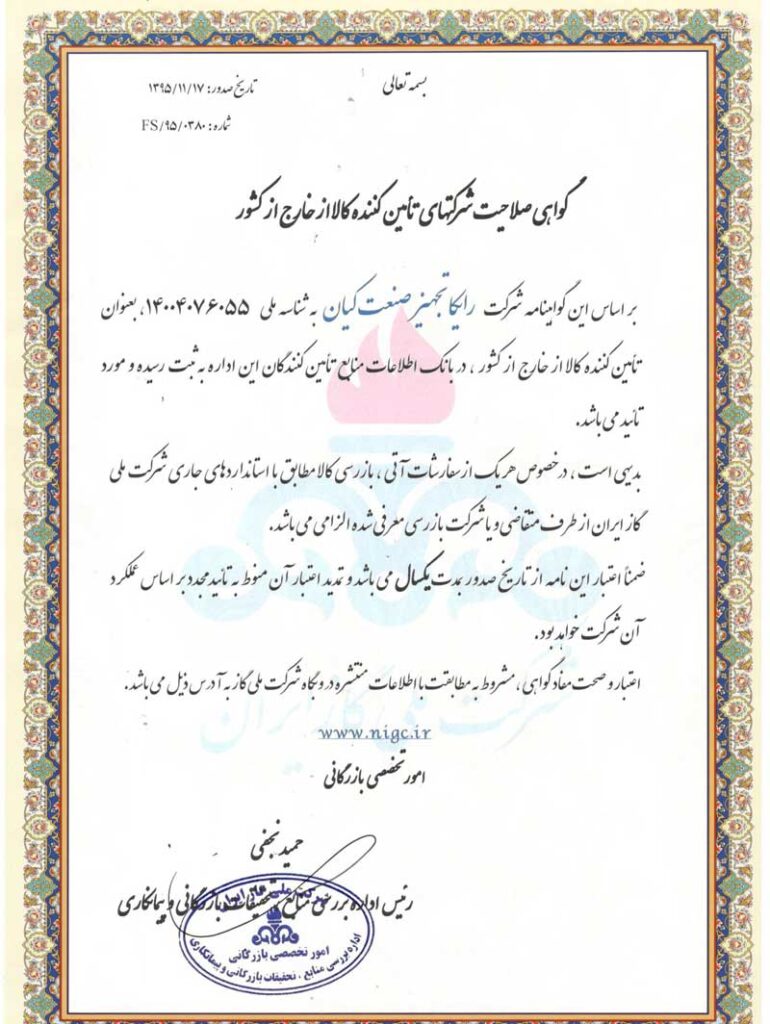 بسمه تعالی
تاریخ صدور: ۱۳۹۵/۱۱/۱۷
شماره: FS/۹۵/۰۳۸۰
گواهی صلاحیت شرکتهای تأمین کننده کالا از خارج از کشور
بر اساس این گواهینامه شرکت رایکا تجهیز صنعت کیان به شناسه ملی ۱۴۰۰۴۰۷۶۰۵۵، بعنوان
تأمین کننده کالا از خارج از کشور ، در بانک اطلاعات منابع تأمین کنندگان این اداره به ثبت رسیده و مورد
تائید می باشد.
بدیهی است ، در خصوص هر یک از سفارشات آتی ، بازرسی کالا مطابق با استانداردهای جاری شرکت ملی
گاز ایران از طرف متقاضی و یا شرکت بازرسی معرفی شده الزامی می باشد.
ضمناً اعتبار این نامه از تاریخ صدور بمدت یکسال می باشد و تمدید اعتبار آن منوط به تائید مجدد بر اساس عملکرد
آن شرکت خواهد بود.
اعتبار و صحت مفاد گواهی ، مشروط به مطابقت با اطلاعات منتشره در وبگاه شرکت ملی گاز به آدرس ذیل می باشد.
شرکت ملی گاز ایران
www.nigc.ir
امور تخصصی بازرگانی
حمید نجفی
رئیس اداره بررسی منابع، تحقیقات بازرگانی و پیمانکاری
شرکت ملی گاز ایران
امور تخصصی بازرگانی
اداره بررسی منابع ، تحقیقات بازرگانی و پیمانکاری